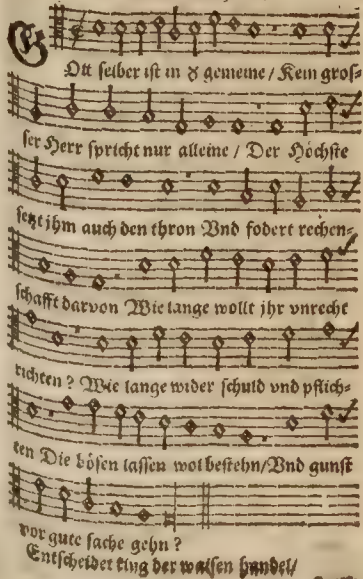 GOtt selber ist in d' gemeine / Kein gros-
ser Herr spricht nur alleine / Der Höchste
setzt jhm auch den thron Vnd fodert rechen-
schafft darvon Wie lange wollt jhr vnrecht
richten? Wie lange wider schuld vnd pflich-
ten Die bösen lassen wol bestehn/Vnd gunst
vor gute sache gehn?
Entscheidet klug der waisen handel/